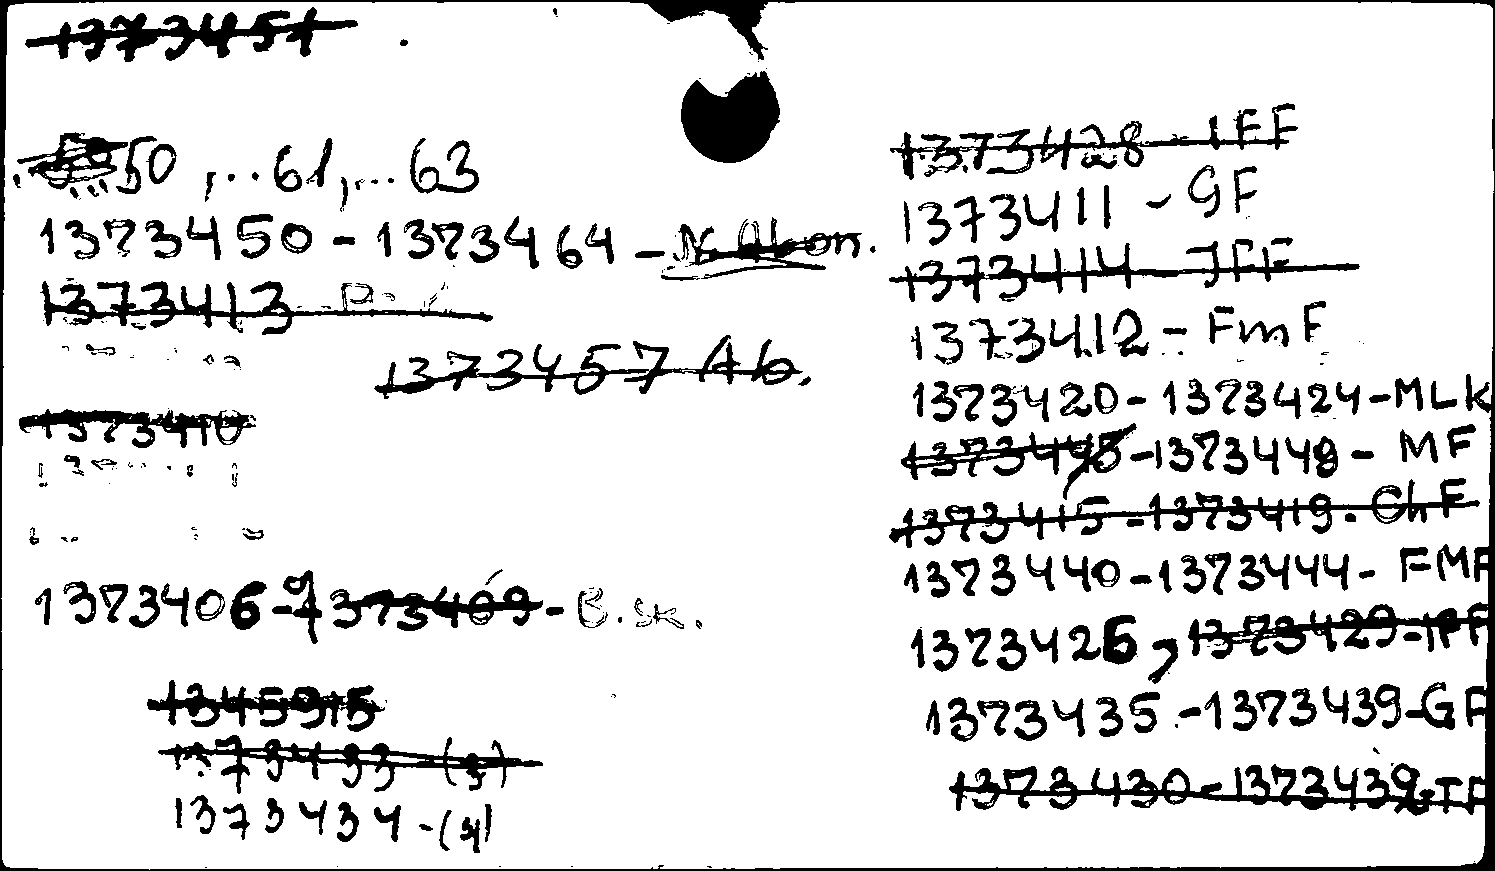 1373451
50 ,..61,...63
1373450 - 1373464 - N. Abon.
1373413
1373457 Ab.
1373410
1373406-1373409- B.sk.
1345915
1373433 -(3)
1373434 -(4)
1373428 - IFF
1373411 - GF
1373414 - JFF
1373412 - FmF
1373420 - 1373424 - MLK
1373445 - 1373449 - MF
1373415 - 1373419 . ChF
1373440 - 1373444 - FMF
1373426 , 1373429 - IFF
1373435 - 1373439 - GF
1373430 - 1373439 - TF